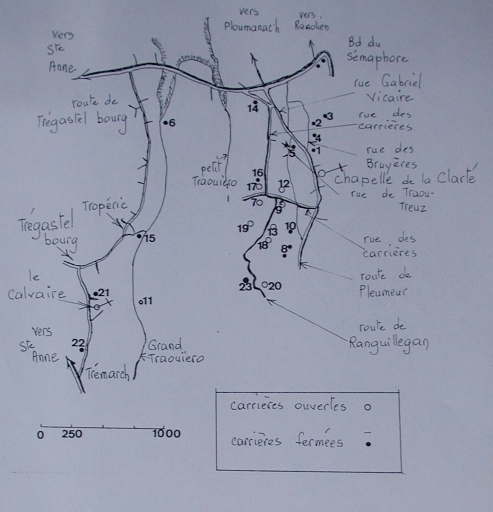 vers
Ste
Anne
vers
Ploumanach
vers
Bd du
Sémaphore
route de
Trégastel bourg
rue Gabriel
Vicaire
rue des
carrières
rue des
Bruyères
Chapelle de la Clarté
rue de Traou-
Treuz
petit
Traouïero
14
3
2
4
1
5
6
16
17
12
7
9
Tropéric
Trégastel
bourg
15
19
13
10
18
8
rue des
carrières
route de
Pleumeur
le
Calvaire
21
11
23
20
route de
Ranguillegan
vers
Ste
Anne
22
Grand
Traouïero
Trémarch
carrières ouvertes
carrières fermées
0 250 1000